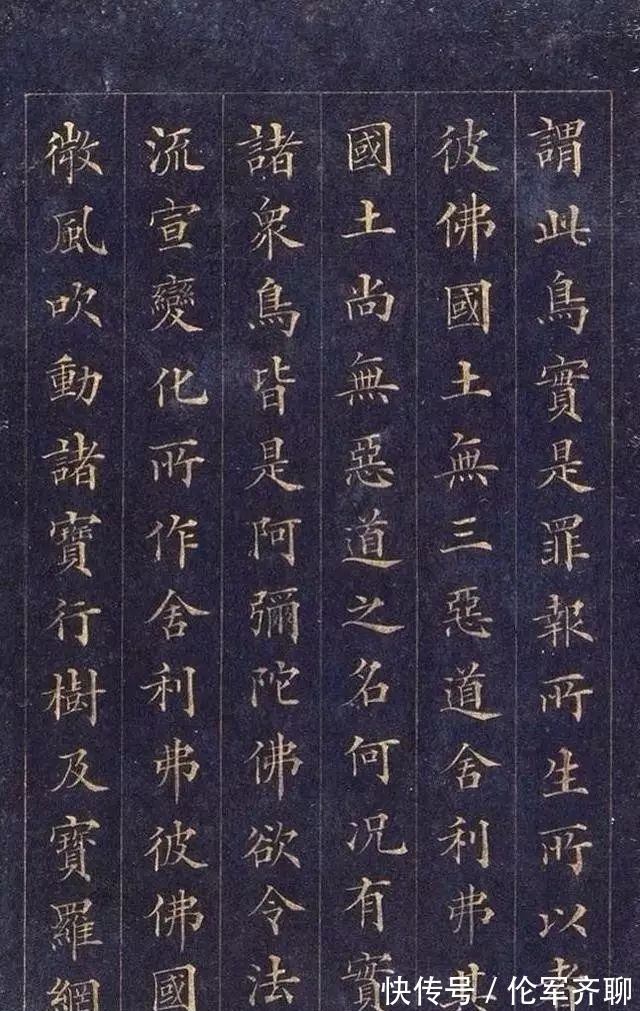 謂此鳥實是罪報所生所以者
彼佛國土無三惡道舍利弗其
國土尚無惡道之名何況有實
諸衆鳥皆是阿彌陀佛欲令法
流宣變化所作舍利弗彼佛國
微風吹動諸寶行樹及寶羅網
快传号 / 伦军齐聊